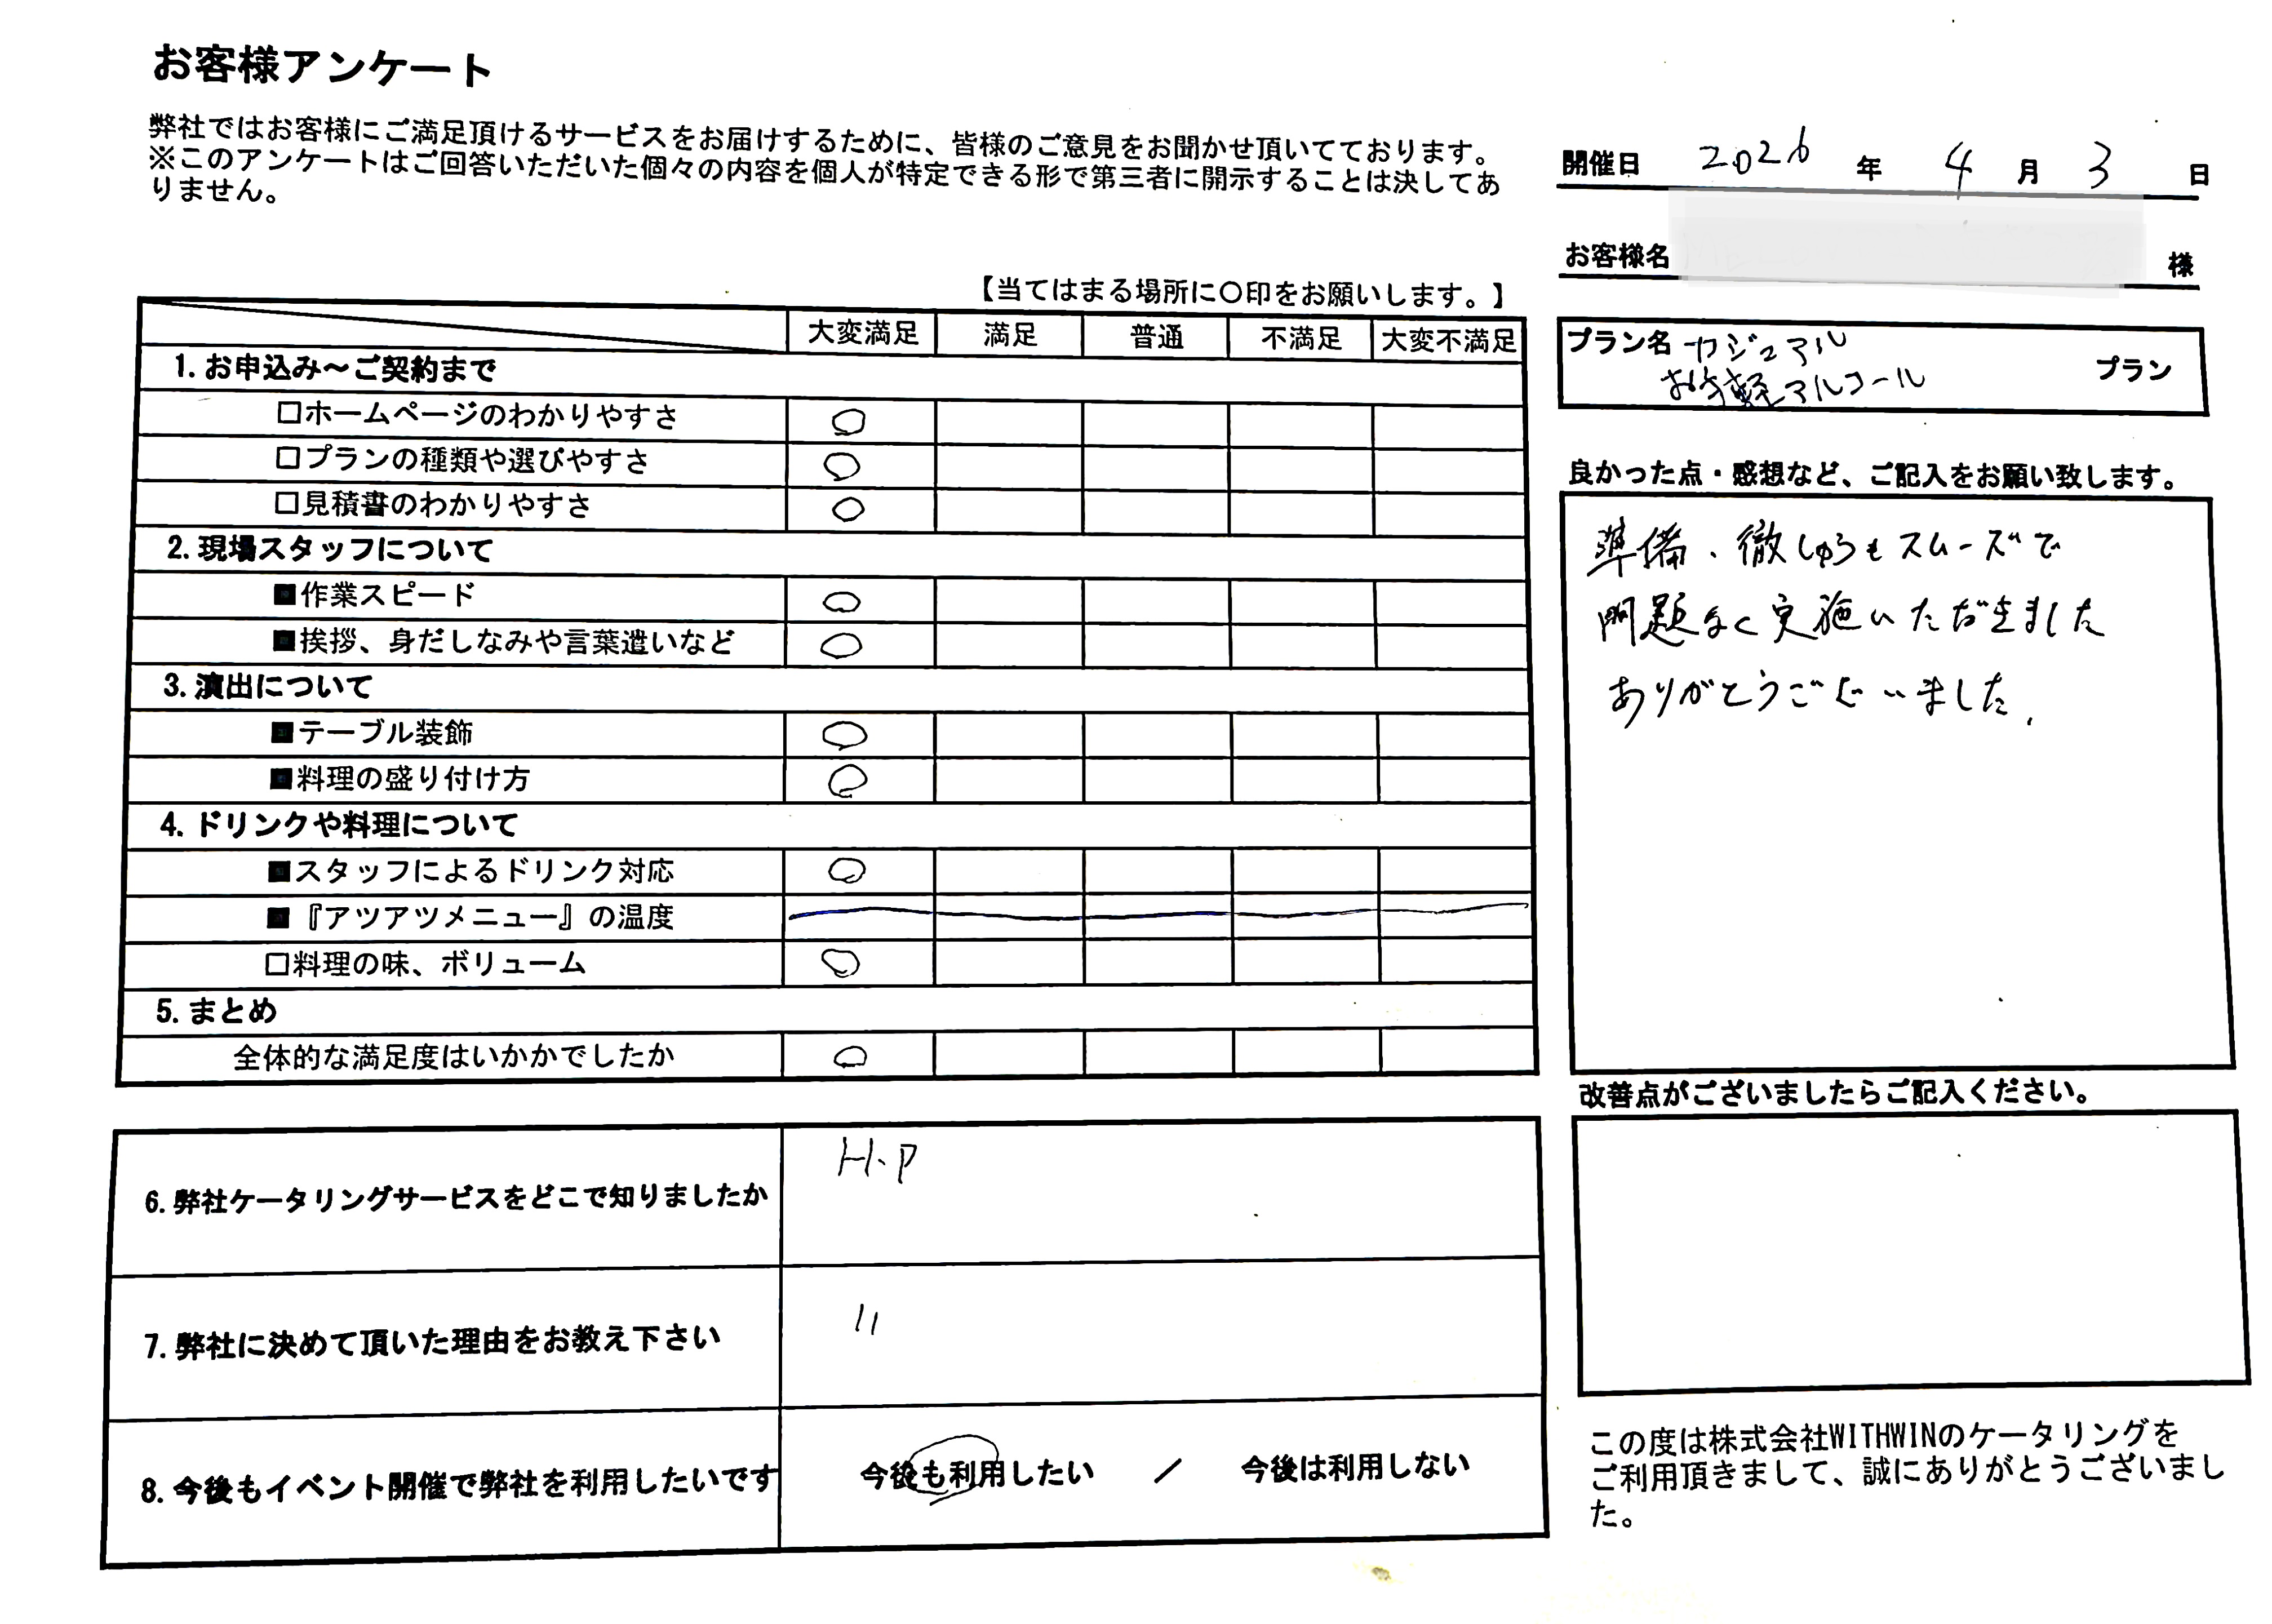 お客様アンケート
弊社ではお客様にご満足頂けるサービスをお届けするために、皆様のご意見をお聞かせ頂いてております。
※このアンケートはご回答いただいた個々の内容を個人が特定できる形で第三者に開示することは決してあ
りません。
開催日 2026 年 4 月 3 日
お客様名 様
【当てはまる場所に〇印をお願いします。】
プラン名 カジュアル
お手軽アルコール プラン
大変満足 満足 普通 不満足 大変不満足
1. お申込み～ご契約まで
□ホームページのわかりやすさ ○
□プランの種類や選びやすさ ○
□見積書のわかりやすさ ○
2. 現場スタッフについて
■作業スピード ○
■挨拶、身だしなみや言葉遣いなど ○
3. 演出について
■テーブル装飾 ○
■料理の盛り付け方 ○
4. ドリンクや料理について
■スタッフによるドリンク対応 ○
■『アツアツメニュー』の温度
□料理の味、ボリューム ○
5. まとめ
全体的な満足度はいかかでしたか ○
良かった点・感想など、ご記入をお願い致します。
準備、徹しゅうもスムーズで
問題なく実施いただきました
ありがとうございました。
改善点がございましたらご記入ください。
6. 弊社ケータリングサービスをどこで知りましたか H.P
7. 弊社に決めて頂いた理由をお教え下さい 〃
8. 今後もイベント開催で弊社を利用したいです 今後も利用したい ／ 今後は利用しない
この度は株式会社WITHWINのケータリングを
ご利用頂きまして、誠にありがとうございまし
た。